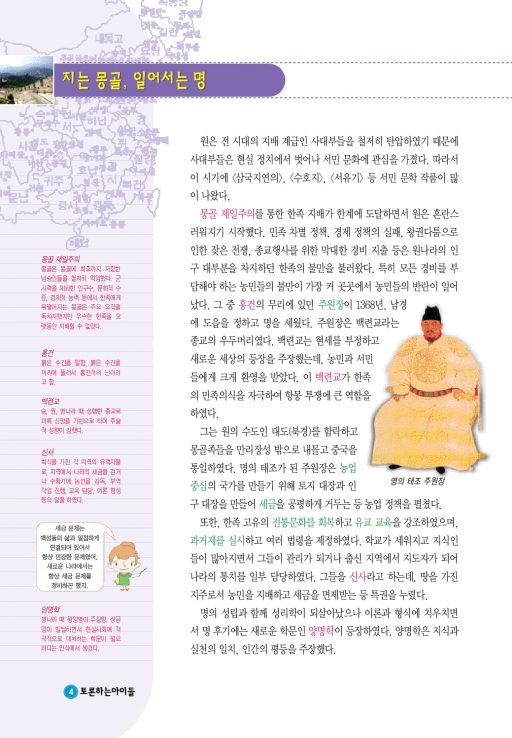 지는 몽골, 일어서는 명
원은 전 시대의 지배 계급인 사대부들을 철저히 탄압하였기 때문에
사대부들은 현실 정치에서 벗어나 서민 문화에 관심을 가졌다. 따라서
이 시기에 〈삼국지연의〉, 〈수호지〉, 〈서유기〉 등 서민 문학 작품이 많
이 나왔다.
몽골 제일주의를 통한 한족 지배가 한계에 도달하면서 원은 혼란스
러워지기 시작했다. 민족 차별 정책, 경제 정책의 실패, 왕권다툼으로
인한 잦은 전쟁, 종교행사를 위한 막대한 경비 지출 등은 원나라의 인
구 대부분을 차지하던 한족의 불만을 불러왔다. 특히 모든 경비를 부
담해야 하는 농민들의 불만이 가장 커 곳곳에서 농민들의 반란이 일어
났다. 그 중 홍건의 무리에 있던 주원장이 1368년, 남경
에 도읍을 정하고 명을 세웠다. 주원장은 백련교라는
종교의 우두머리였다. 백련교는 현세를 부정하고
새로운 세상의 등장을 주장했는데, 농민과 서민
들에게 크게 환영을 받았다. 이 백련교가 한족
의 민족의식을 자극하여 항몽 투쟁에 큰 역할을
하였다.
그는 원의 수도인 대도(북경)를 함락하고
몽골족들을 만리장성 밖으로 내몰고 중국을
통일하였다. 명의 태조가 된 주원장은 농업
중심의 국가를 만들기 위해 토지 대장과 인
구 대장을 만들어 세금을 공평하게 거두는 등 농업 정책을 펼쳤다.
또한, 한족 고유의 전통문화를 회복하고 유교 교육을 강조하였으며,
과거제를 실시하고 여러 법령을 제정하였다. 학교가 세워지고 지식인
들이 많아지면서 그들이 관리가 되거나 출신 지역에서 지도자가 되어
나라의 통치를 일부 담당하였다. 그들을 신사라고 하는데, 땅을 가진
지주로서 농민을 지배하고 세금을 면제받는 등 특권을 누렸다.
명의 성립과 함께 성리학이 되살아났으나 이론과 형식에 치우치면
서 명 후기에는 새로운 학문인 양명학이 등장하였다. 양명학은 지식과
실천의 일치, 인간의 평등을 주장했다.
명의 태조 주원장
몽골 제일주의
몽골은 몽골에 최후까지 저항한
남송인들을 철저히 억압했다. 군
사력을 제외한 인구수, 문화적 수
준, 경제적 능력 등에서 한족에게
뒤떨어지는 몽골은 주요 요직을
독차지했지만 우수한 한족을 오
랫동안 지배할 수 없었다.
홍건
붉은 수건을 말함. 붉은 수건을
머리에 둘러서 홍건적의 난이라
고 함.
백련교
송, 원, 명나라 때 성행한 종교로
미륵 신앙을 기반으로 하며 주술
적 성향이 강했다.
신사
학식을 가진 각 지역의 유력자들
로, 지역에서 나라의 세금을 걷거
나 수확기에 농민을 감독, 부역
작업 진행, 교육 담당, 여론 형성
등의 일을 하였다.
세금 문제는
백성들의 삶과 밀접하게
연결되어 있어서
항상 민감한 문제였어.
새로운 나라에서는
항상 세금 문제를
정비하곤 했지.
양명학
명나라 때 왕양명이 주장함. 상공
업이 발달하면서 현실사회에 적
극적으로 대처하는 학문이 필요
하다는 인식에서 생겼다.
4 토론하는아이들